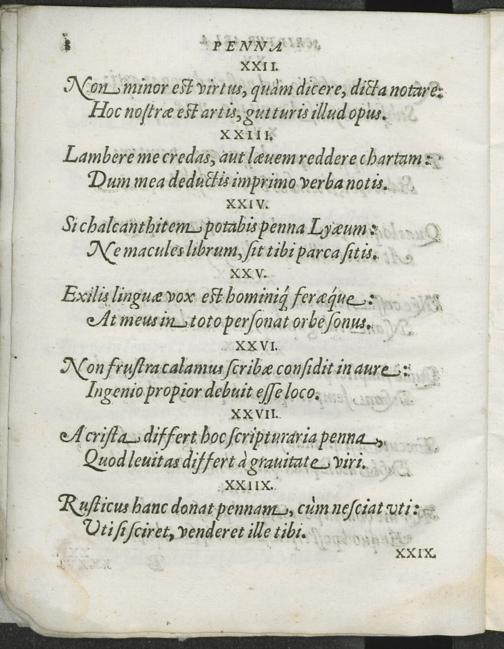 8 PENNA
XXII.
Non minor est virtus, quàm dicere, dicta notare:
Hoc nostræ est artis, gutturis illud opus.
XXIII.
Lambere me credas, aut læuem reddere chartam:
Dum mea deductis imprimo verba notis.
XXIV.
Si chalcanthitem potabis penna Lyæum:
Ne macules librum, sit tibi parca sitis.
XXV.
Exilis linguæ vox est hominiq́ feræq́ue:
At meus in toto personat orbe sonus.
XXVI.
Non frustra calamus scribæ considit in aure:
Ingenio propior debuit esse loco.
XXVII.
A crista differt hoc scripturaria penna,
Quod leuitas differt à grauitate viri.
XXIIX.
Rusticus hanc donat pennam, cùm nesciat vti:
Vti si sciret, venderet ille tibi.
XXIX.